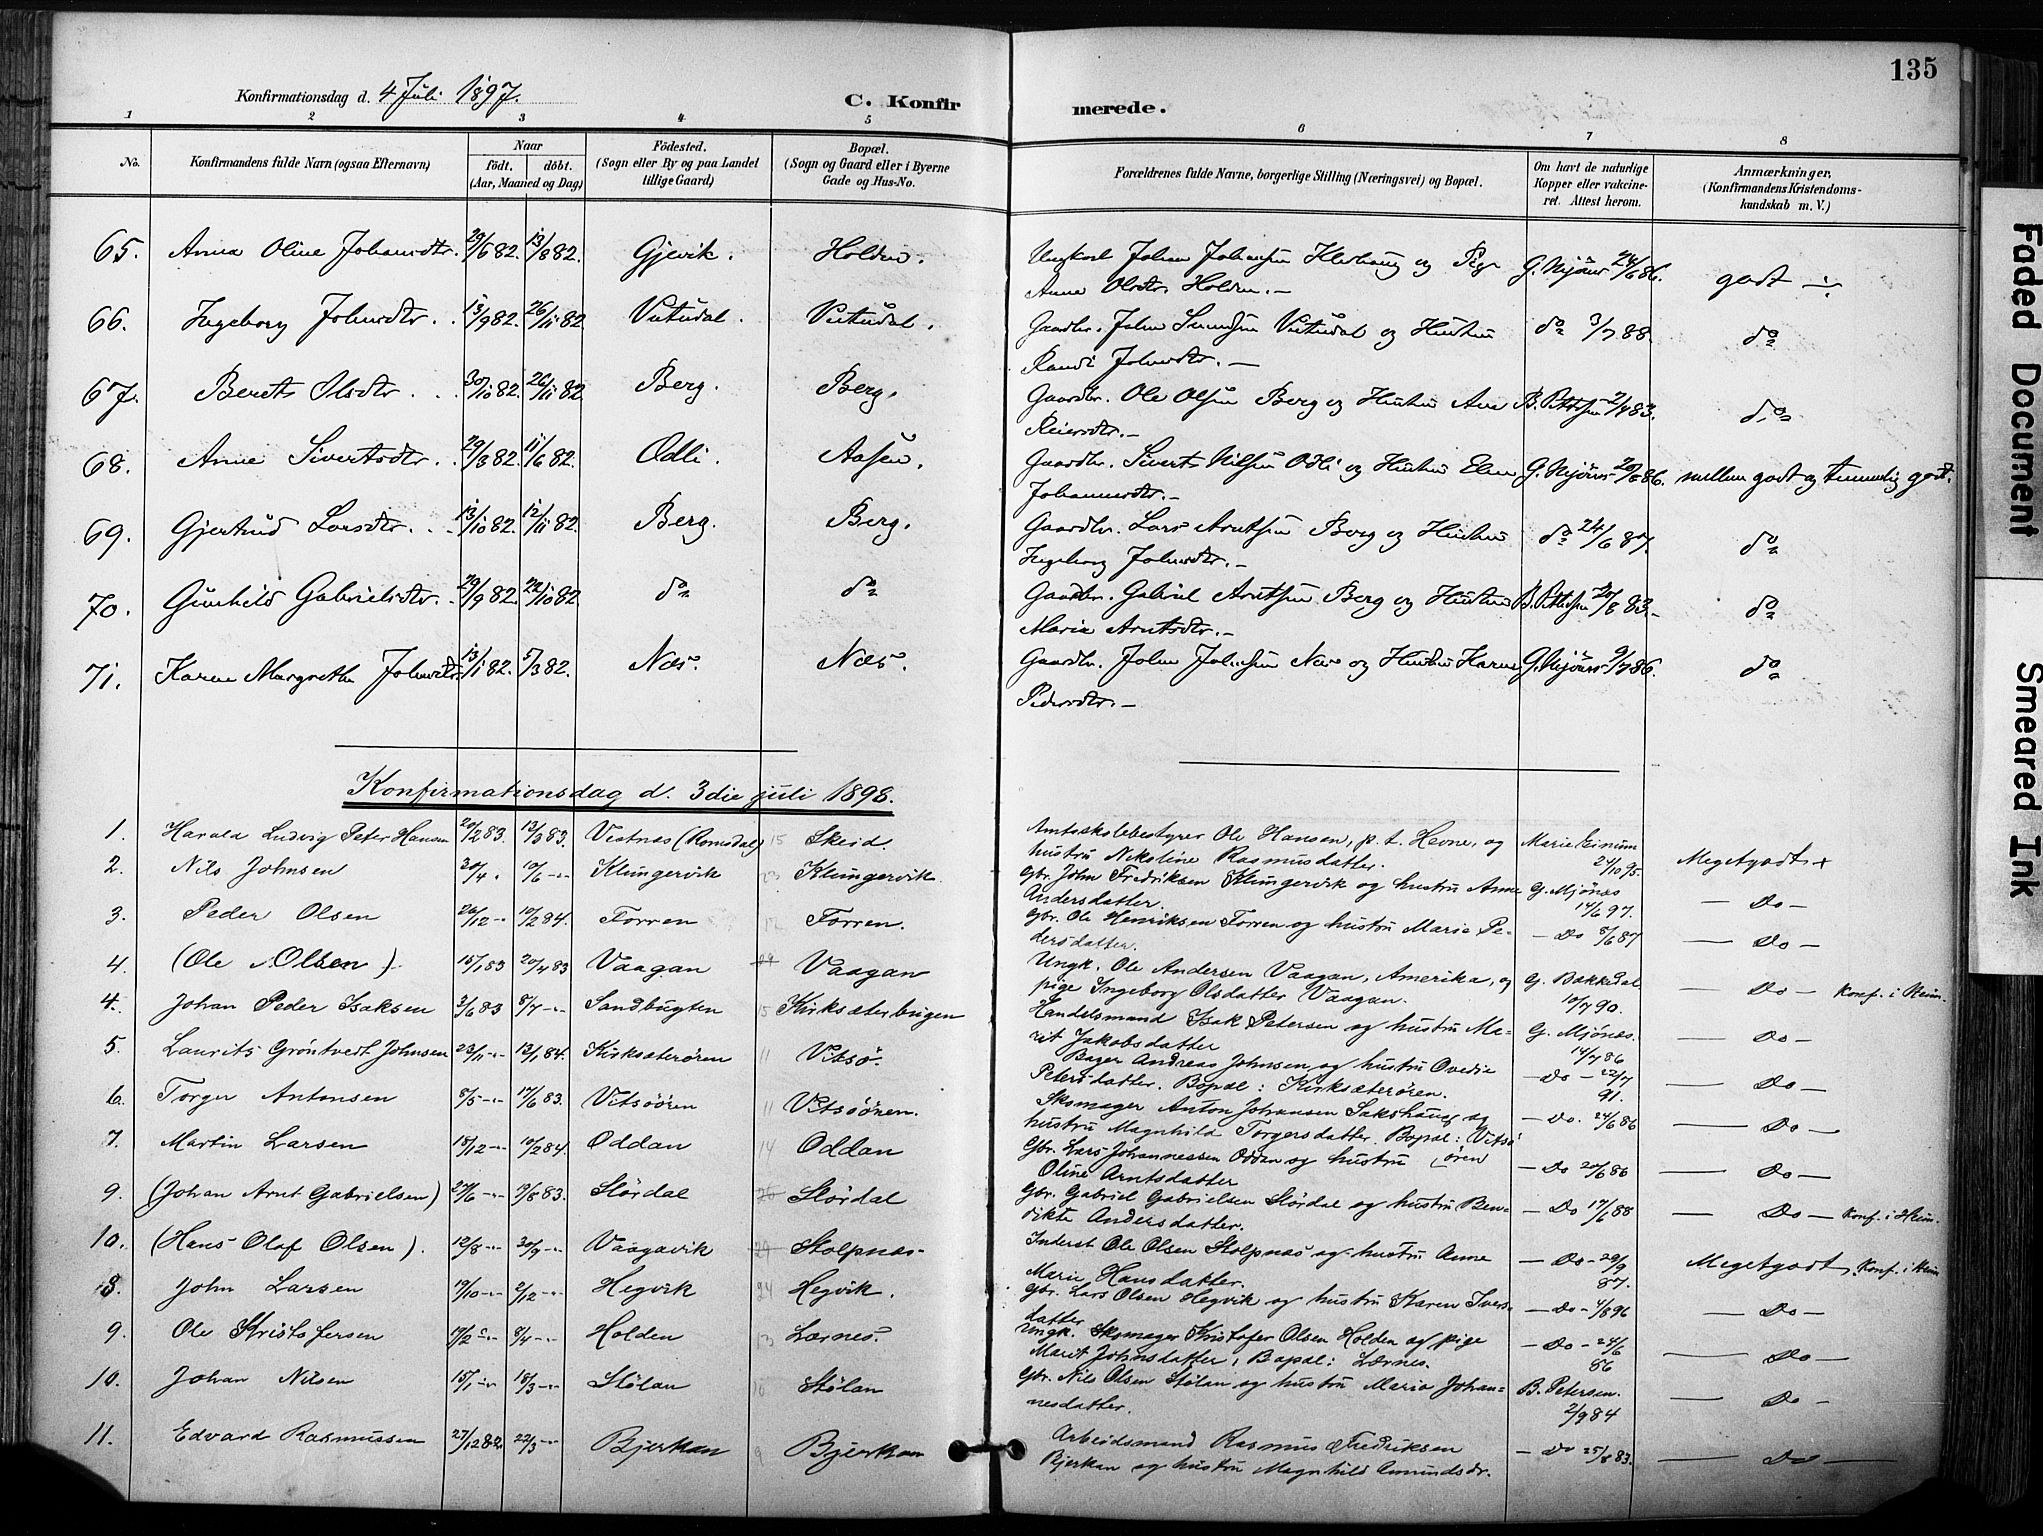 135
Konfirmationsdag d. 4 Juli 1897.
C. Konfirmerede.
1 2 3 4 5 6 7 8
No.
Konfirmandens fulde Navn (ogsaa Efternavn)
Naar
født. døbt.
(Aar, Maaned og Dag)
Fødested.
(Sogn eller By og paa Landet
tillige Gaard)
Bopæl.
(Sogn og Gaard eller i Byerne
Gade og Hus-No.
Forældrenes fulde Navne, borgerlige Stilling (Næringsvei) og Bopæl.
Om havt de naturlige
Kopper eller vakcine-
ret. Attest herom.
Anmærkninger,
(Konfirmandens Kristendoms-
kundskab m. V.)
65. Anna Oline Johansdtr. 29/6 82. 13/8 82. Gjevik. Holden. Ungkarl Johan Johansen og Pige G. Mjönes 24/6 86. godt
Anne Olsdtr Holden.—
66. Ingeborg Johnsdtr. 13/9 82. 26/11 82 Vutudal. Vutudal. Gaardbr. John Vutudal og Hustru do 3/7 88. do
Randi Johnsdtr.—
67. Berit Olsdtr. 30/10 82. 26/11 82 Berg. Berg. Gaardbr. Ole Olsen Berg og Hustru Ane B. Petersen 2/7 83. do
Reiersdtr.—
68. Anne Sivertsdtr. 29/3 82. 11/6 82. Odli. Aasen. Gaardbr. Sivert Nilsen Odli og Hustru Elen G. Mjönes 20/6 86. mellem godt og temmelig godt.
Johannesdtr.—
69. Gjertrud Larsdtr. 13/10 82. 12/11 82. Berg. Berg. Gaardbr. Lars Arntsen Berg og Hustru do 24/6 87. do
Ingeborg Johnsdtr.—
70. Gunhild Gabrielsdtr. 29/9 82. 22/10 82. do do Gaardbr. Gabriel Arntsen Berg og Hustru B. Petersen 20/8 83.— do
Marie Arntsdtr.—
71. Karen Margrethe Johnsdtr. 13/1 82. 5/3 82. Næs. Næs. Gaardbr. John Johnsen Næs og Hustru Karen G. Mjönes 9/7 86. do
Pedersdtr.—
Konfirmationsdag d. 3die juli 1898.
1. Harald Ludvig Peter Hansen 20/2 83. 13/3 83. Vestnes (Romsdal) 15 Skeid. Amtsskolebestyrer Ole Hansen, p. t. Hevne, og Marie Einum
hustru Nikoline Rasmusdatter. 24/10 95. Megetgodt +
2. Nils Johnsen 30/4 " 10/6 -"- Klungervik Klungervik Gbr. John Fredriksen Klungervik og hustru Anne G. Mjönes
Andersdatter. 14/6 97. — Do —
3. Peder Olsen 26/12 -" 10/2 84. Torren 12 Torren. Gbr. Ole Henriksen Torren og hustru Marie Pe- — Do 8/6 87 — Do —
dersdatter.
4. (Ole Olsen). 15/1 83 20/4 83 Vaagan Vaagan Ungk. Ole Andersen Vaagan, Amerika, og G. Bakkedal
pige Ingeborg Olsdatter Vaagan. 10/7 90. — Do — Konf. i Heim.
4. Johan Peder Isaksen 3/6 83 8/7 -"- Sandbugten 15 Kirksæterbugen Handelsmand Isak Petersen og hustru Ma- G. Mjönes.
rit Jakobsdatter 14/7 86 — Do —
5. Laurits Gröntvedt Johnsen 23/11 -"- 13/1 84. Kirksæterören 11 Vitsö. Bager Andreas Johnsen og hustru Ovedie — Do — 22/7
Petersdatter. Bopæl: Kirksæterören. 91. — Do —
6. Torger Antonsen 8/5 -"- 17/6 83. Vitsöören 11 Vitsöören. Skomager Anton Johansen Sakshaug og — Do. 24/6 86
hustru Magnhild Torgersdatter. Bopæl: Vitsö- — Do —
ören
7. Martin Larsen 15/12 -"- 10/2 84. Oddan 14 Oddan Gbr. Lars Johannessen Oddan og hustru — Do 20/6 86 — Do —
Oline Arntsdatter
9. (Johan Arnt Gabrielsen) 27/6 -"- 19/8 83. Stördal 26 Stördal Gbr. Gabriel Gabrielsen Stördal og hustru Ben- — Do 17/6 88 — Do — Konf. i Heim.
dikte Andersdatter.
10. (Hans Olaf Olsen). 12/8 -"- 30/9 -"- Vaagavik Stolpnæs. Inderst Ole Olsen Stolpnæs og hustru Anne — Do — 29/9
Marie Hansdatter. 87. Megetgodt. Konf. i Heim
8. John Larsen 19/10 -"- 2/12 -"- Hegvik 24 Hegvik. Gbr. Lars Olsen Hegvik og hustru Karen Ivers- — Do — 4/8 96 — Do —
datter
9. Ole Kristofersen 17/2 -"- 8/4 -"- Holden 13 Lernes. Ungk. Skomager Kristofer Olsen Holden og pige — Do — 24/6
Marit Johnsdatter, Bopæl: Lernes. 86 — Do —
10. Johan Nilsen 15/1 -"- 18/3 -"- Stölan 10 Stölan Gbr. Nils Olsen Stölan og hustru Maria Johan- B. Petersen.
nesdatter. 2/9 84 — Do —
11. Edvard Rasmussen 27/12 82. 22/3 -"- Bjerkan 9 Bjerkan Arbeidsmand Rasmus Fredriksen — Do 25/8 83.
Bjerkan og hustru Magnhild Amundsdr. — Do —
Faded Document
Smeared Ink